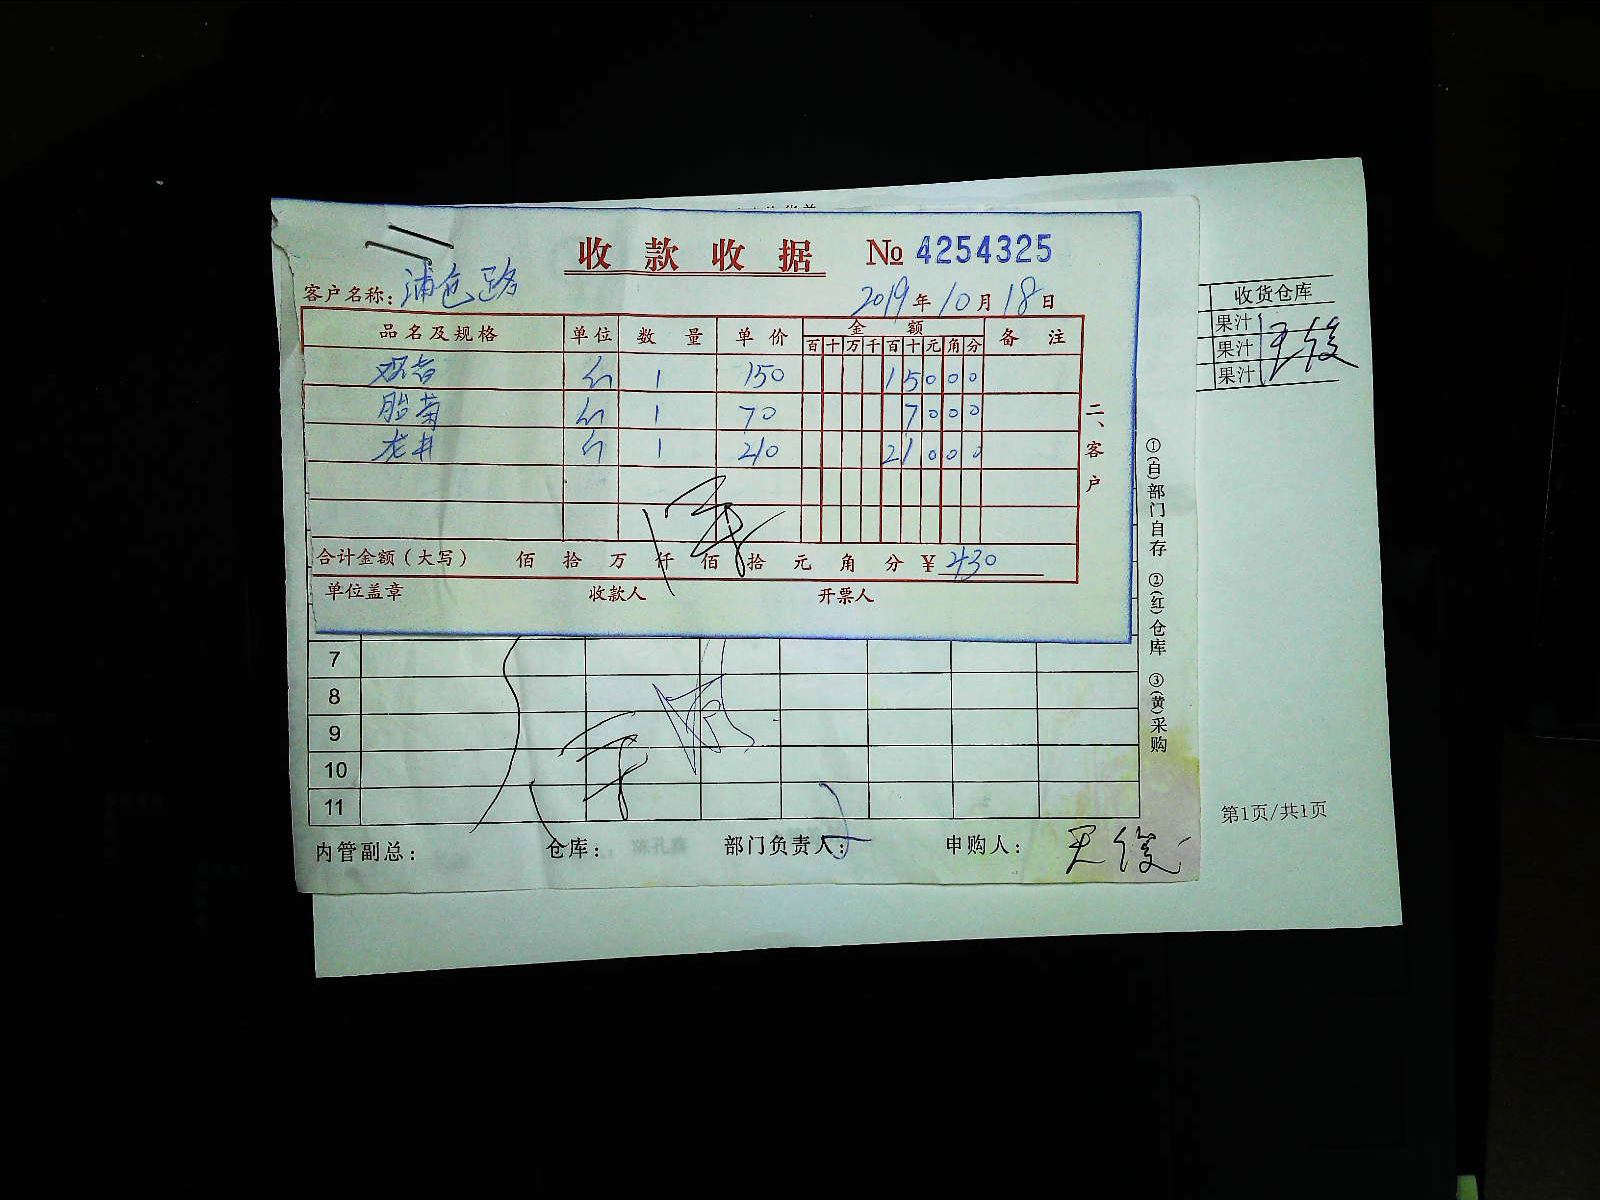 收款收据 № 4254325
客户名称: 浦仓路 2019年10月18日
品名及规格 单位 数量 单价 金额 备注
百 十 万 千 百 十 元 角 分
1 150 15000
胎菊 1 70 7000
龙井 1 210 21000
合计金额(大写) 佰 拾 万 仟 佰 拾 元 角 分 ¥430
单位盖章 收款人 开票人
二、客户
7
8
9
10
11
内管副总: 仓库: 部门负责人: 申购人: 王俊
①(白)部门自存 ②(红)仓库 ③(黄)采购
收货仓库
果汁
果汁
果汁
王俊
第1页/共1页